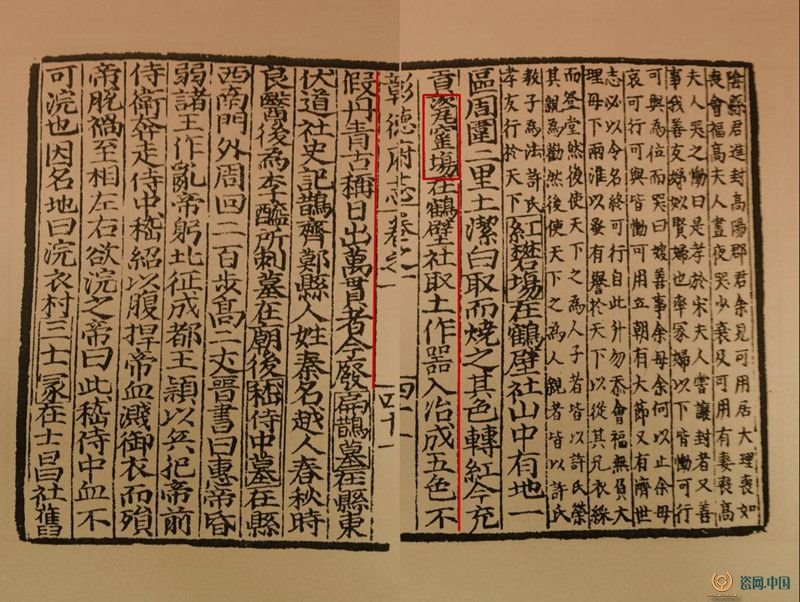 陰縣君進封高陽郡君余見可用居大理喪如
喪會福高夫人晝夜哭少衰及可用有妻喪高
夫人哭之慟曰是孝於宋夫人嘗讓封者又善
事我善友娣姒賢婦也率冢婦以下皆慟可行
可與為位而哭曰嫂善事余母余何以止余母
哀可行可與皆慟可用立朝有大節又有濟世
志必以令名終可行自此外勿忝會福無負大
理毋下兩淮以發有譽於天下以從其兄衣綵
而登堂然後使天下之為人子者皆以許氏榮
其親為勸然後使天下之為人觀者皆以許氏
教子為法許氏
孝友行於天下
紅礬場在鶴壁社山中有地一
區周圍二里土潔白取而燒之其色轉紅今充
貢瓷窰場在鶴壁社取土作器入冶成五色不
彰德府志卷之 四十一
假丹青古稱日出萬貫者今廢扁鵲墓在縣東
伏道社史記鵲齊鄭縣人姓秦名越人春秋時
良醫後為李醯所刺墓在廟後嵇侍中墓在縣
西南門外周回二百步高二丈晉書曰惠帝昏
弱諸王作亂帝躬北征成都王穎以兵犯帝前
侍衛奔走侍中嵇紹以腹捍帝血濺御衣而殞
帝脫禍至相左右欲浣之帝曰此嵇侍中血不
可浣也因名地曰浣衣村三士冢在士昌社舊
瓷网.中国